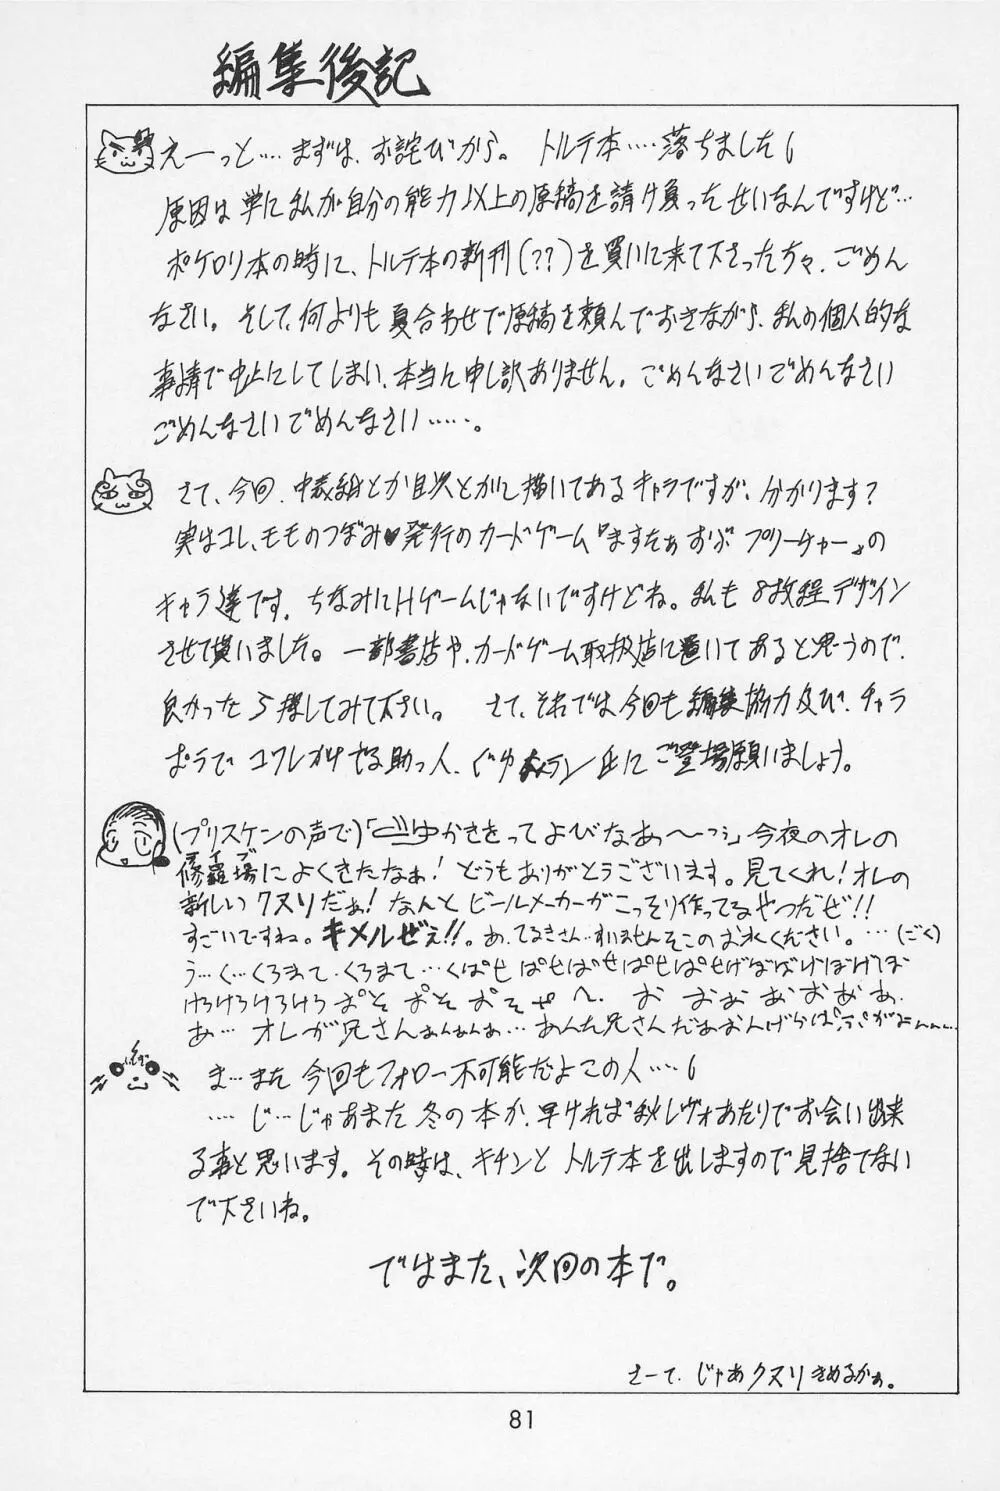 編集後記
えーっと…まずは、お詫びから。 トルテ本‥‥落ちました
原因は単に私が自分の能力以上の原稿を請け負ったせいなんですけど…
ポケロリ本の時に、トルテ本の新刊(??)を買いに来て下さった方々、ごめん
なさい。そして、何よりも夏合わせで原稿を頼んでおきながら、私の個人的な
事情で中止にしてしまい、本当に申し訳ありません。ごめんなさいごめんなさい
ごめんなさいごめんなさい……。
さて、今回、中表紙とか目次とかに描いてあるキャラですが、分かります?
実はコレ、モモのつぼみ♥発行のカードゲーム『ますたぁおぶ プリーチャー』の
キャラ達です。ちなみにHゲームじゃないですけどね。私も8枚程デザイン
させて貰いました。一部書店や、カードゲーム取扱店に置いてあると思うので、
良かったら探してみて下さい。 さて、それでは今回も編集協力及び、チャラ
ポラでコワレかけてる助っ人、
氏にご登場願いましょう。
(プリスケンの声で)
ゆかさきってよびなぁ〜っ」今夜のオレの
修羅場によくきたなぁ! どうもありがとうございます。見てくれ!オレの
新しいクスリだぁ! なんと ビールメーカーがこっそり作ってるやつだぜ!!
すごいですね。キメルぜぇ!!。あ、てるきさん…すいませんそこのお水ください。…(ごく)
う…く…くろまて、くろまて…くぱせ ぱせぱせぱせぱせぱせげばばばけぼげぼ
けろけろけろけろ おそ おそ おそ
あ… オレが兄さん
ま…また 今回もフォロー不可能だよこの人‥‥
‥‥じ…じゃあまた冬の本か、早ければ秋レヴォあたりでお会い出来
る事と思います。その時は、キチンと トルテ本を出しますので見捨てない
で下さいね。
ではまた、次回の本で。
さーて、じゃあクスリきめるかぁ。
81